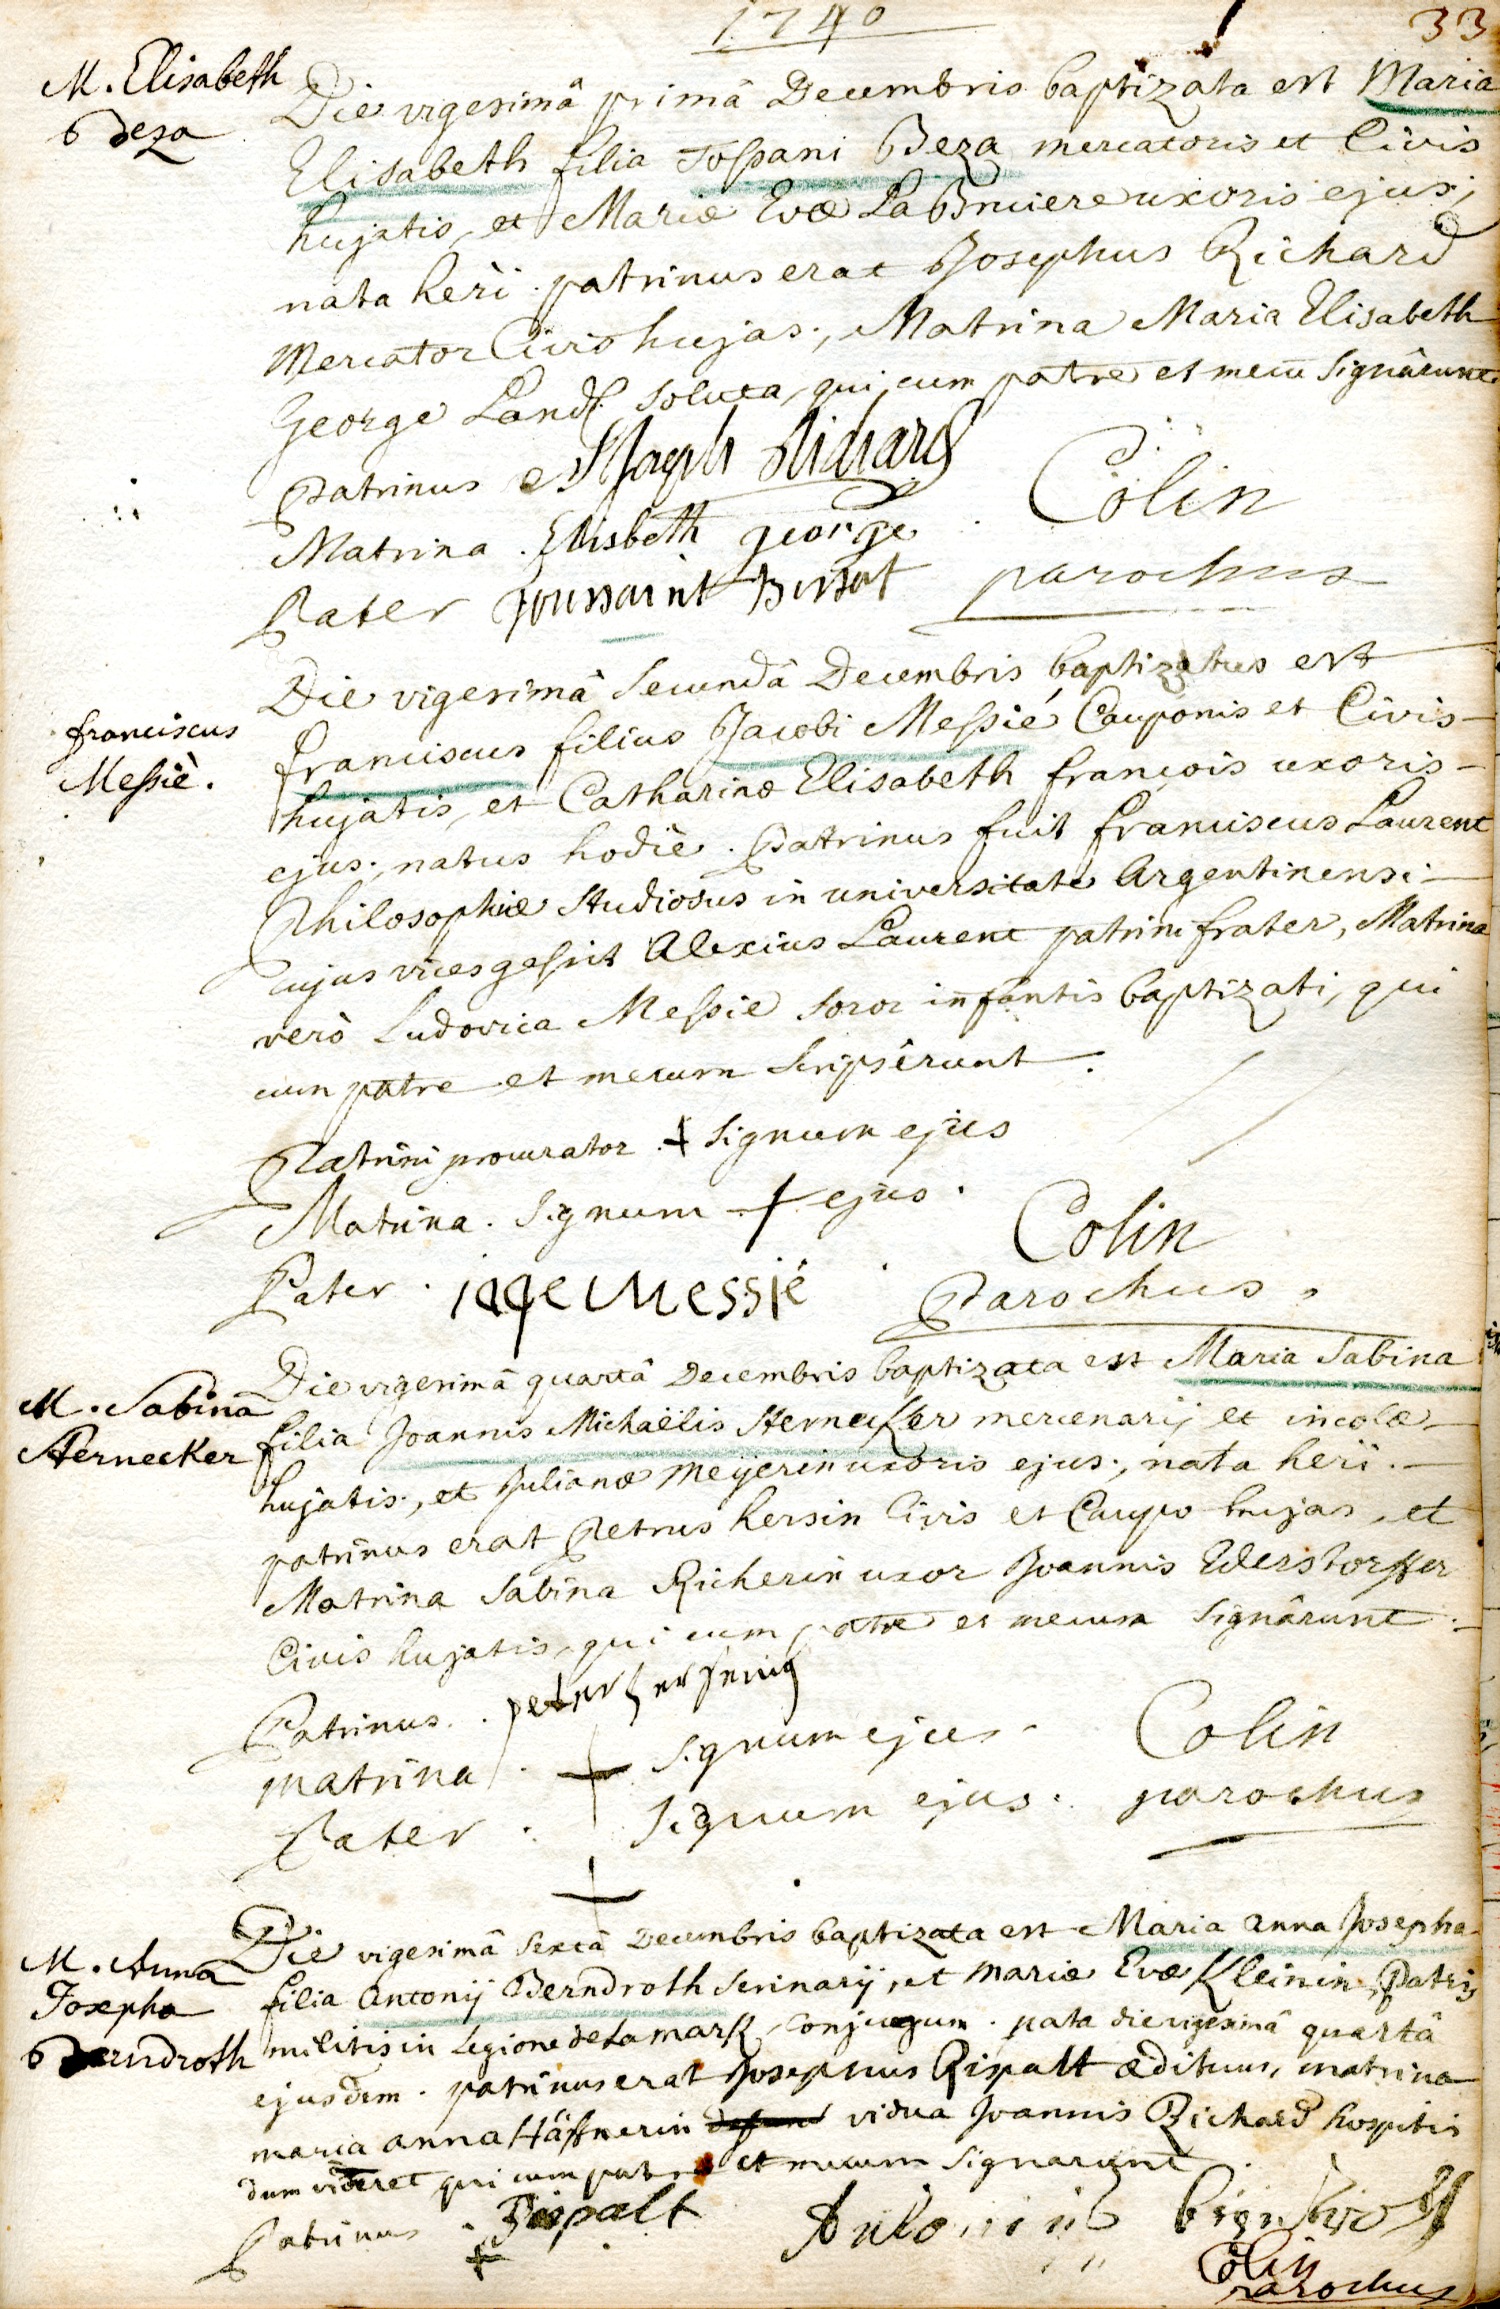 1740
33
M. Elisabeth
Beza
Die vigesimâ primâ Decembris baptizata est Maria
Elisabeth filia Tossani Beza mercatoris et Civis
hujatis, et Mariæ Evæ LaBruiere uxoris ejus;
nata heri. patrinus erat Josephus Richard
Mercator Civis hujas, Matrina Maria Elisabeth
George soluta, qui cum patre et mecū signârunt.
Patrinus Joseph Richard
Matrina. Elisbeth george
Pater Joussaint
Colin
parochus
franciscus
Messiè.
Die vigesimâ secundâ Decembris baptizatus est
franciscus filius Jacobi Messié Cauponis et Civis
hujatis, et Catharinæ Elisabeth françois uxoris
ejus; natus hodiè. Patrinus fuit franciscus Laurent
Philosophiæ studiosus in universitate Argentinensi
cujus vices gessit Alexius Laurent patrini frater, Matrina
verò Ludovica Messie soror infantis baptizati, qui
cum patre et mecum scripsêrunt.
Patrini procurator. + signum ejus
Matrina. Signum + ejus.
Pater. Messié
Colin
Parochus.
M. Sabina
Sternecker
Die vigesimâ quartâ Decembris baptizata est Maria Sabina
filia Joannis Michaëlis Sternecker mercenarij et incolæ
hujatis, et Julianæ Meÿerin uxoris ejus, nata heri.
patrinus erat Petrus hersin Civis et Caupo hujas, et
Matrina Sabina Richerin uxor Joannis Ederstorffer
Civis hujatis, qui cum patre et mecum signârunt.
Patrinus. peter hersening
Matrina. + signum ejus
Pater. + signum ejus.
Colin
parochus
M. Anna
Josepha
Berndroth
Die vigesimâ sextâ Decembris baptizata est Maria Anna Josepha
filia Antonij Berndroth scrinarij, et Mariæ Evæ Kleinin, Patris
militis in Legione de La mark, conjugum. nata die vigesimâ quartâ
ejusdem. patrinus erat Josephus Rispalt ædituus, matrina
maria anna Häffnerin vidua Joannis Richard hospitis
dum viveret, qui cum patre et mecum signarunt.
Patrinus. Rispalt
+
Colin
parochus